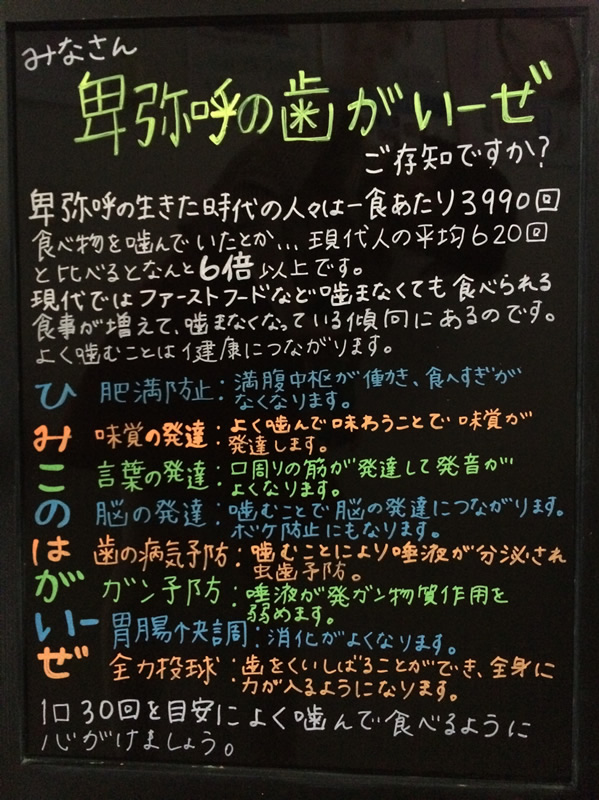 みなさん
卑弥呼の歯がいーぜ
ご存知ですか?
卑弥呼の生きた時代の人々は一食あたり3990回
食べ物を噛んでいたとか…現代人の平均620回
と比べるとなんと6倍以上です。
現代ではファーストフードなど噛まなくても食べられる
食事が増えて、噛まなくなっている傾向にあるのです。
よく噛むことは健康につながります。
ひ 肥満防止:満腹中枢が働き、食べすぎが
なくなります。
み 味覚の発達:よく噛んで味わうことで味覚が
発達します。
こ 言葉の発達:口周りの筋が発達して発音が
よくなります。
の 脳の発達:噛むことで脳の発達につながります。
ボケ防止にもなります。
は 歯の病気予防:噛むことにより唾液が分泌され
虫歯予防。
が ガン予防:唾液が発ガン物質作用を
弱めます。
いー 胃腸快調:消化がよくなります。
ぜ 全力投球:歯をくいしばることができ、全身に
力が入るようになります。
1口30回を目安によく噛んで食べるように
心がけましょう。